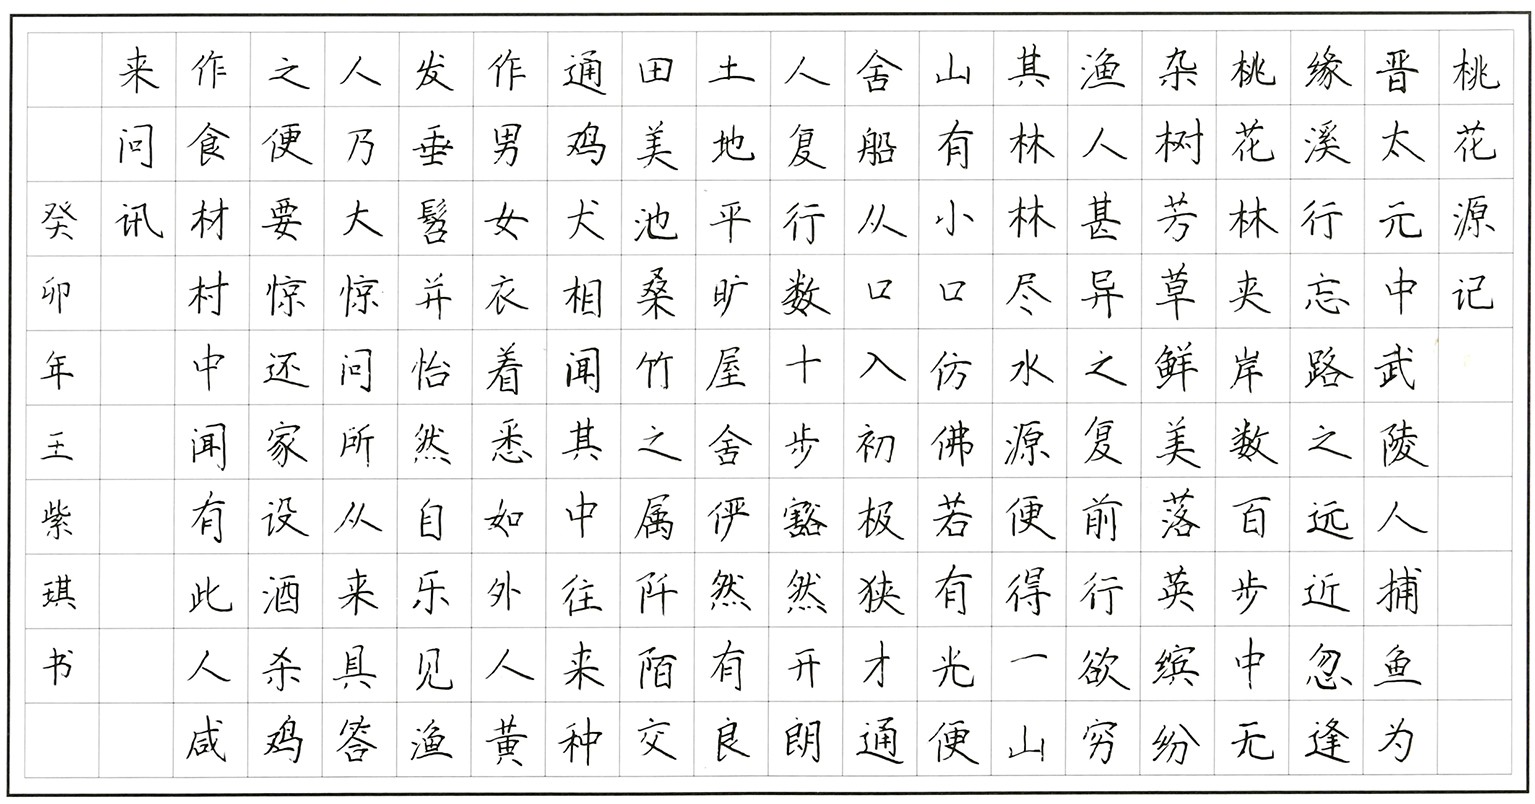 桃花源记
晋太元中武陵人捕鱼为
缘溪行忘路之远近忽逢
桃花林夹岸数百步中无
杂树芳草鲜美落英缤纷
渔人甚异之复前行欲穷
其林林尽水源便得一山
山有小口仿佛若有光便
舍船从口入初极狭才通
人复行数十步豁然开朗
土地平旷屋舍俨然有良
田美池桑竹之属阡陌交
通鸡犬相闻其中往来种
作男女衣着悉如外人黄
发垂髫并怡然自乐见渔
人乃大惊问所从来具答
之便要惊还家设酒杀鸡
作食材村中闻有此人咸
来问讯
癸卯年王紫琪书